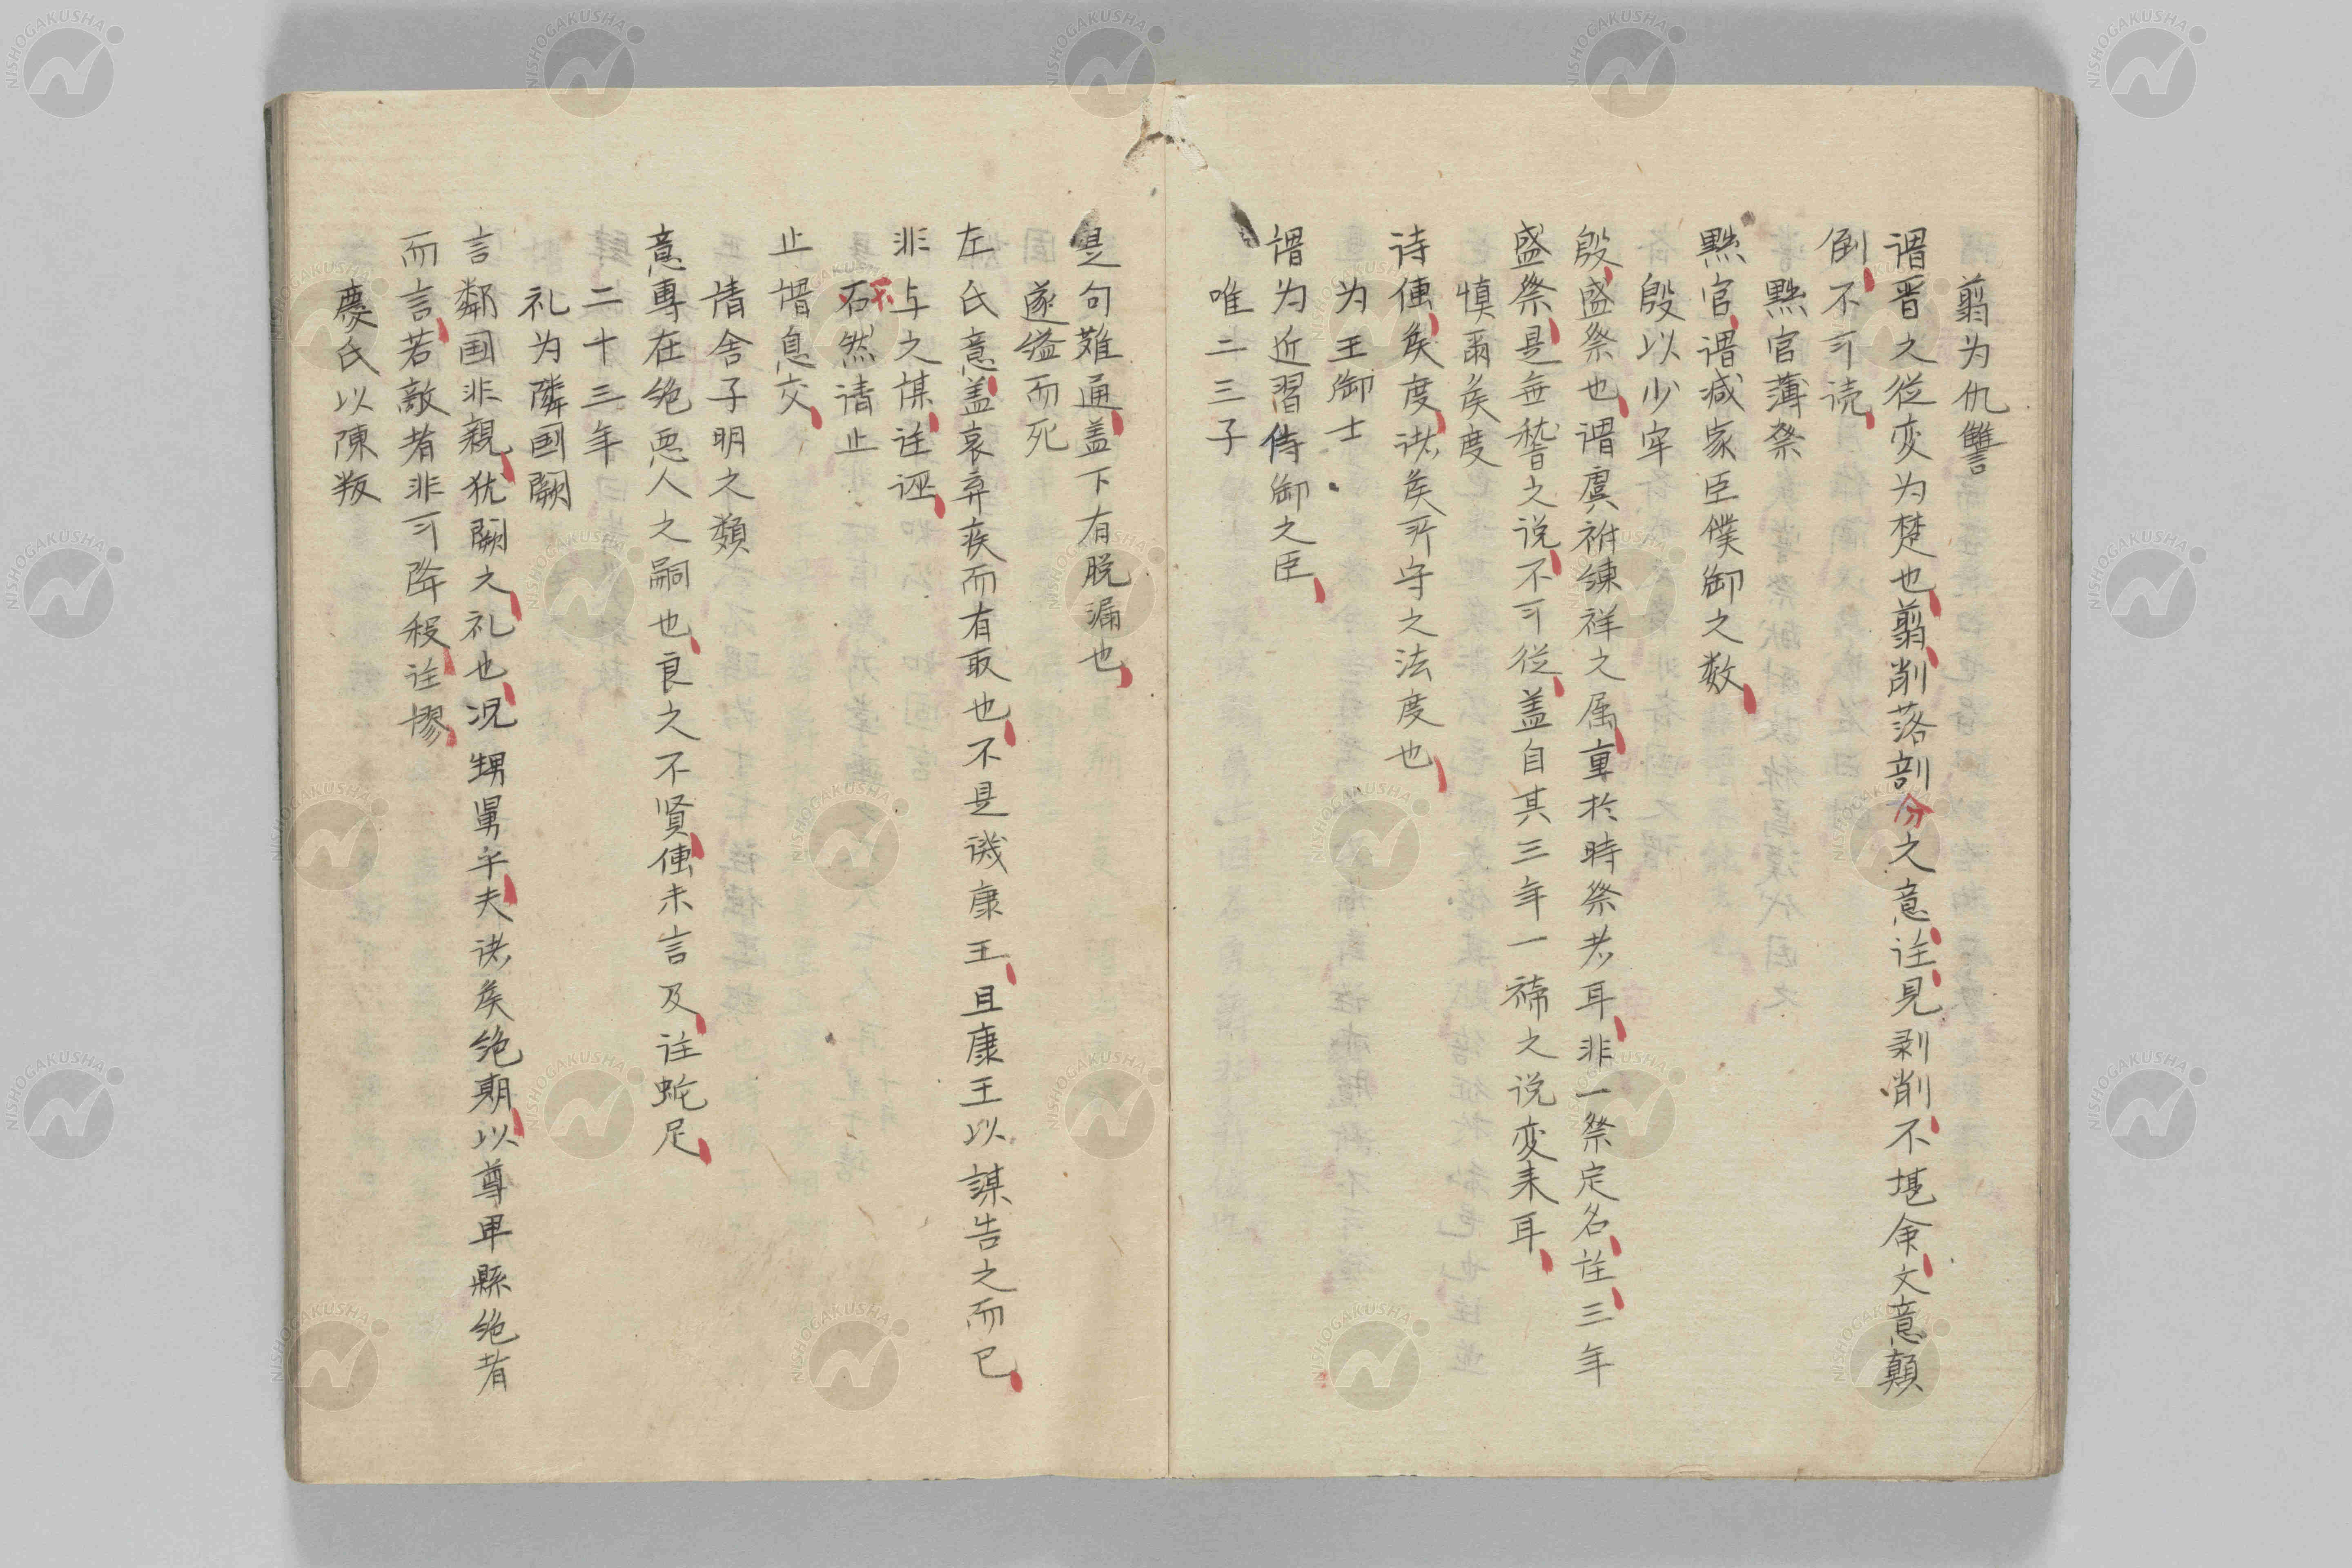 翦为仇讐
谓晋之從変为楚也翦削落剖分之意注見剥削不堪余文意顛
倒不可読
黙官薄祭
黙官谓减家臣僕御之数
殷以少牢
殷盛祭也谓虞祔練祥之属重於時祭者耳非一祭定名注三年
盛祭是無稽之说不可從盖自其三年一禘之说変来耳
慎爾侯度
诗傳侯度诸侯所守之法度也
为王御士
谓为近習侍御之臣
唯二三子
是句難通盖下有脱漏也
遂缢而死
左氏意盖哀弃疾而有取也不是譏康王且康王以謀告之而已
非与之谋注诬
不然请止
止谓息交
请舍子明之類
意專在绝悪人之嗣也良之不贤傳未言及注蛇足
二十三年
礼为隣国闕
言鄰国非親犹闕之礼也况甥舅乎夫诸侯绝期以尊卑縣绝者
而言若敵者非可降殺注謬
慶氏以陳叛